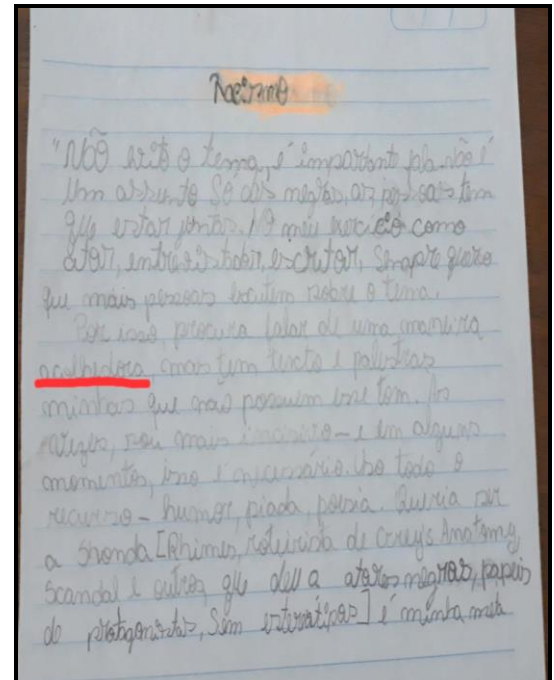 Racismo
"NÃO evito o tema, é importante pois não é
Um assunto Só dos negros, as pessoas tem
que estar juntas. NO meu exercício como
ator, entrevistador, escritor, Sempre quero
que mais pessoas escutem sobre o tema.
Por isso, procura falar de uma maneira
acolhedora, mas tem texto e palestras
minhas que não possuem esse tom. As
vezes, sou mais incisivo - e em alguns
momentos, isso é necessário. Uso todo o
recurso - humor, piada, poesia. Queria ser
a Shonda [Rhimes, roteirista de Grey's Anatomy,
Scandal e outros, que deu a atores negros, papeis
de protagonistas, Sem estereótipos] é minha meta